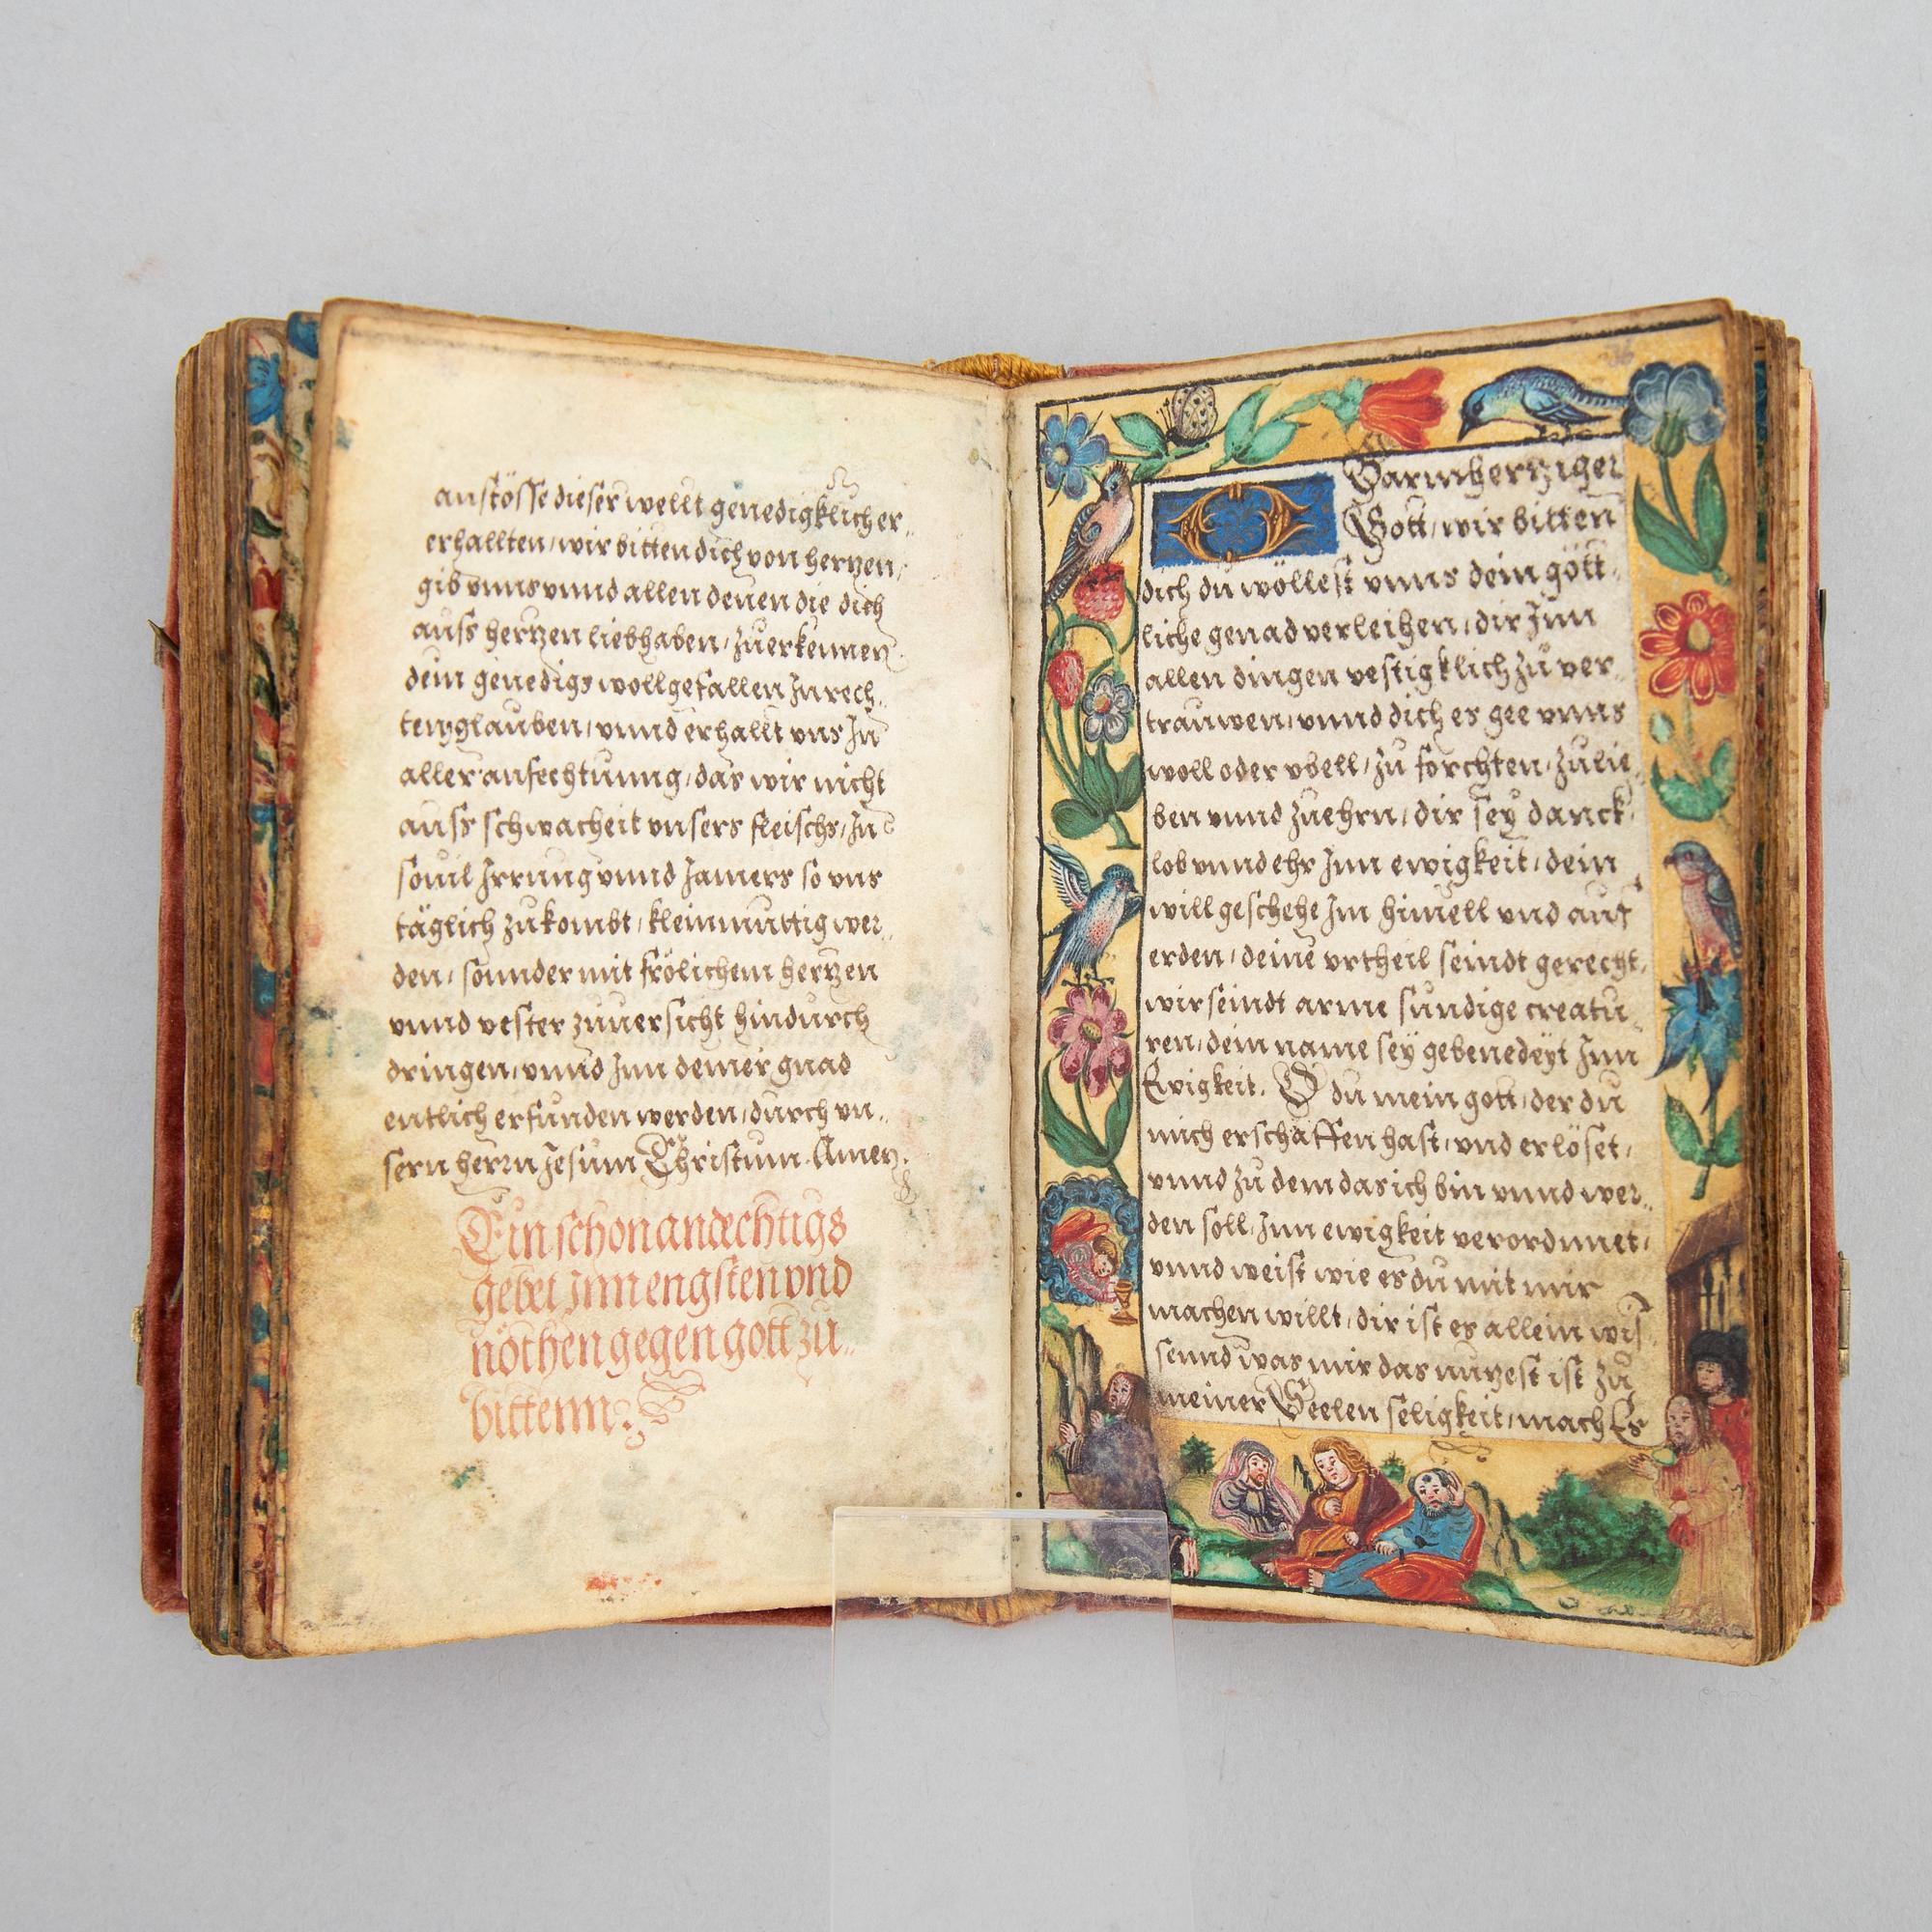 anstösse dieser wellt genedigklich er„
erhallten/ wir bitten dich von hertzen/
gib vnns vnnd allen denen die dich
auss hertzen liebhaben/ zuerkennen
dein genedigs wollgefallen Inn rech„
tem glauben/ vnnd erhallt vns In
aller anfechtuung/ das wir nicht
auss schwacheit vnsers fleischs/ In
souil Irrung vnnd Jamers so vns
täglich zukombt/ kleinmuttig wer„
den/ sonnder mit frölichem hertzen
vnnd vester zuuersicht hindurch
dringen/ vnnd Inn deiner gnad
entlich erfunden werden/ durch vn„
sern herrn Jesum Christum. Amen.
Ein schon andechtigs
gebet Inn engsten vnd
nöthen gegen gott zu„
bittenn:
O Barmhertziger
Gott/ wir bitten
dich du wöllest vnns dein gött„
liche genad verleihen/ dir Inn
allen dingen vestigklich zu ver„
trauwen/ vnnd dich es gee vnns
woll oder vbell/ zu forchten/ zulie„
ben vnnd zuehrn/ dir sey danck
lob vnnd ehr Inn ewigkeit/ dein
will geschehe Im himell vnd auf
erden/ deine vrtheil seindt gerecht,
wir seindt arme sundige creatu„
ren/ dein name sey gebenedeyt Inn
Ewigkeit. O du mein gott/ der du
mich erschaffen hast/ vnd erlöset/
vnnd zu dem das ich bin vnnd wer„
den soll/ Inn ewigkeit verordnnet/
vnnd weist wie es du mit mir
machen willt/ dir ist es allein wis„
sennd was mir das nutzest ist zu
meiner Seelen seligkeit/ mach Es